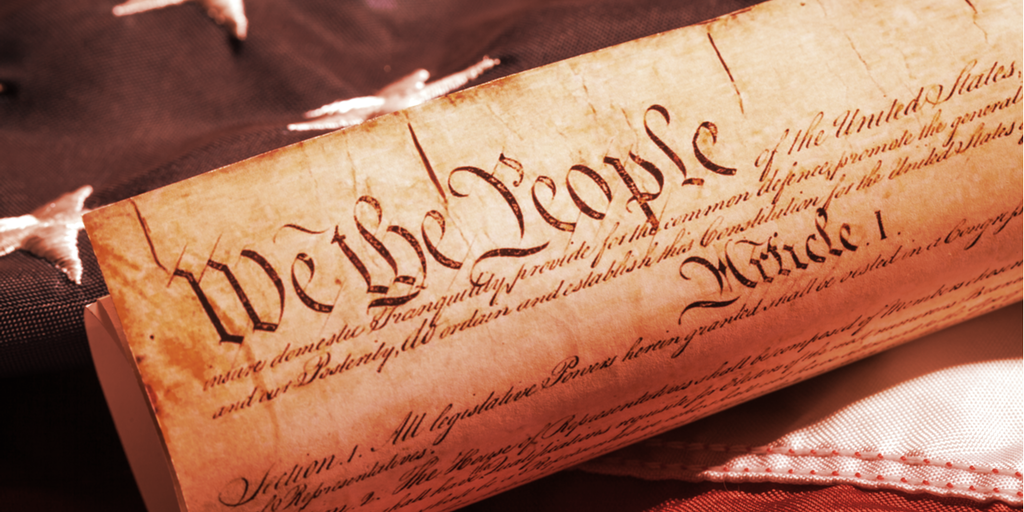 We the People of the United States,
insure domestic Tranquility, provide for the common defence, promote the general
and our Posterity, do ordain and establish this Constitution for the United States
Article. I.
Section. 1. All legislative Powers herein granted shall be vested in a Congress
of Representatives.
2. The House of Representatives shall be composed of Members